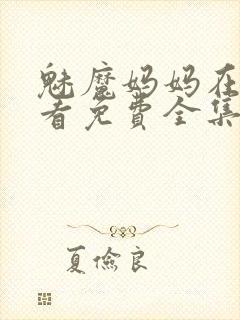 魅魔妈妈在
看免费全集
夏俭良